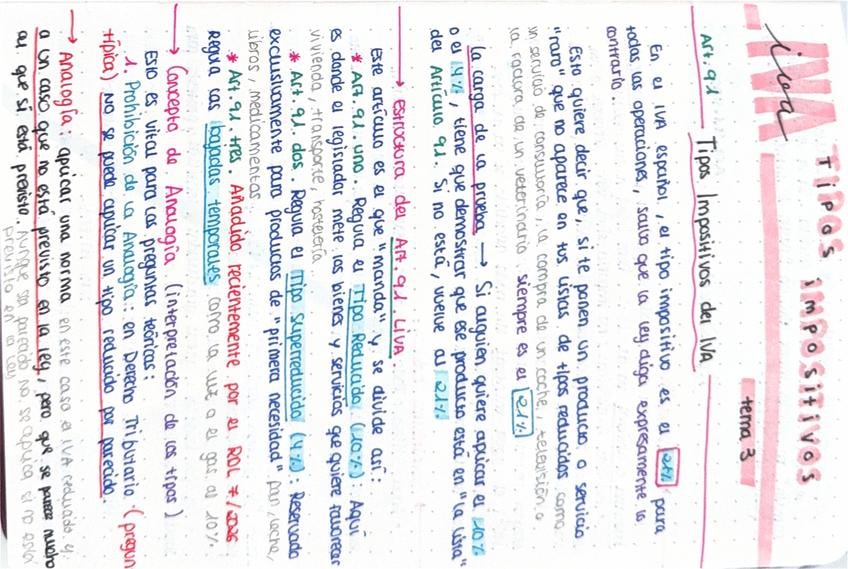 IVA
iva
TIPOS IMPOSITIVOS
tema 3
Art. 91 Tipos Impositivos del IVA
En el IVA español, el tipo impositivo es el 21% para
todas las operaciones, salvo que la ley diga expresamente lo
contrario.
Esto quiere decir que, si te ponen un producto o servicio
"raro" que no aparece en tus listas de tipos reducidos como
un servicio de consultoría, la compra de un coche, televisión o
la factura de un veterinario siempre es el 21%
La carga de la prueba → Si alguien quiere aplicar el 10%
o el 4%, tiene que demostrar que ese producto está en "la lista"
del Artículo 91. Si no está, vuelve al 21%
→ Estructura del Art. 91 LIVA.
Este artículo es el que "manda" y se divide así:
* Art. 91. uno. Regula el Tipo Reducido (10%). Aquí
es donde el legislador mete los bienes y servicios que quiere favorecer
vivienda, transporte, hostelería
* Art. 91. dos. Regula el Tipo Superreducido (4%): Reservado
exclusivamente para productos de "primera necesidad" pan, leche,
libros, medicamentos.
* Art. 91. tres. Añadido recientemente por el RDL 7/2026
Regula las bajadas temporales como la luz o el gas al 10%.
→ Concepto de Analogía (interpretación de los tipos)
Esto es vital para las preguntas teóricas:
1. Prohibición de la Analogía: en Derecho Tributario (pregun
típica) no se puede aplicar un tipo reducido por parecido.
→ Analogía: aplicar una norma en este caso el IVA reducido y
a un caso que no está previsto en la ley, pero que se parece mucho
al que sí está previsto. Aunque sea parecido no se aplica si no está
previsto en la ley